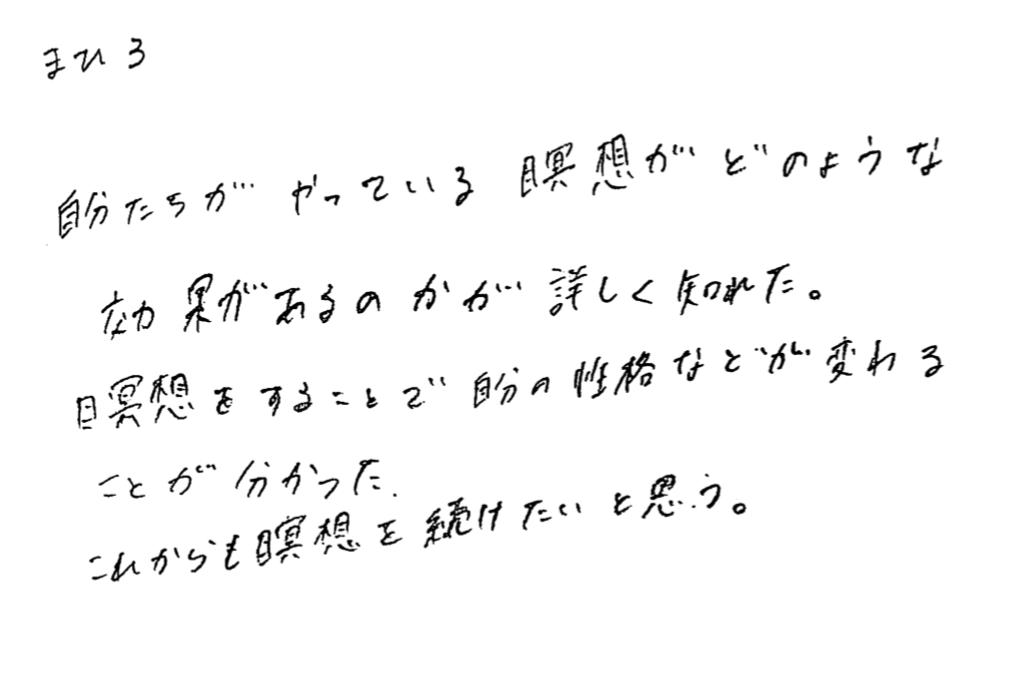 まひろ
自分たちがやっている瞑想がどのような
効果があるのかが詳しく知れた。
瞑想をすることで自分の性格などが変わる
ことが分かった.
これからも瞑想を続けたいと思う。